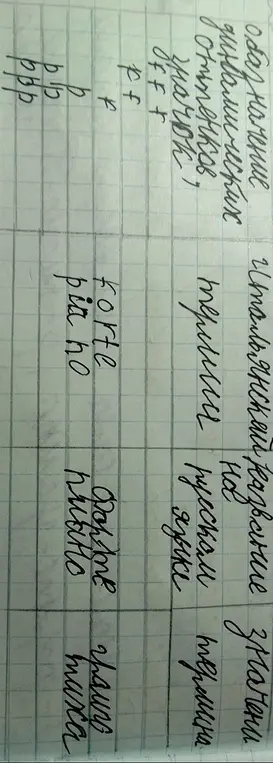 обозначение Итальянский название значени
динамических термин на термина
оттенков, русском
значок языке
f f f
f f
f forte форте громко
p piano пиано тихо
p p
ppp